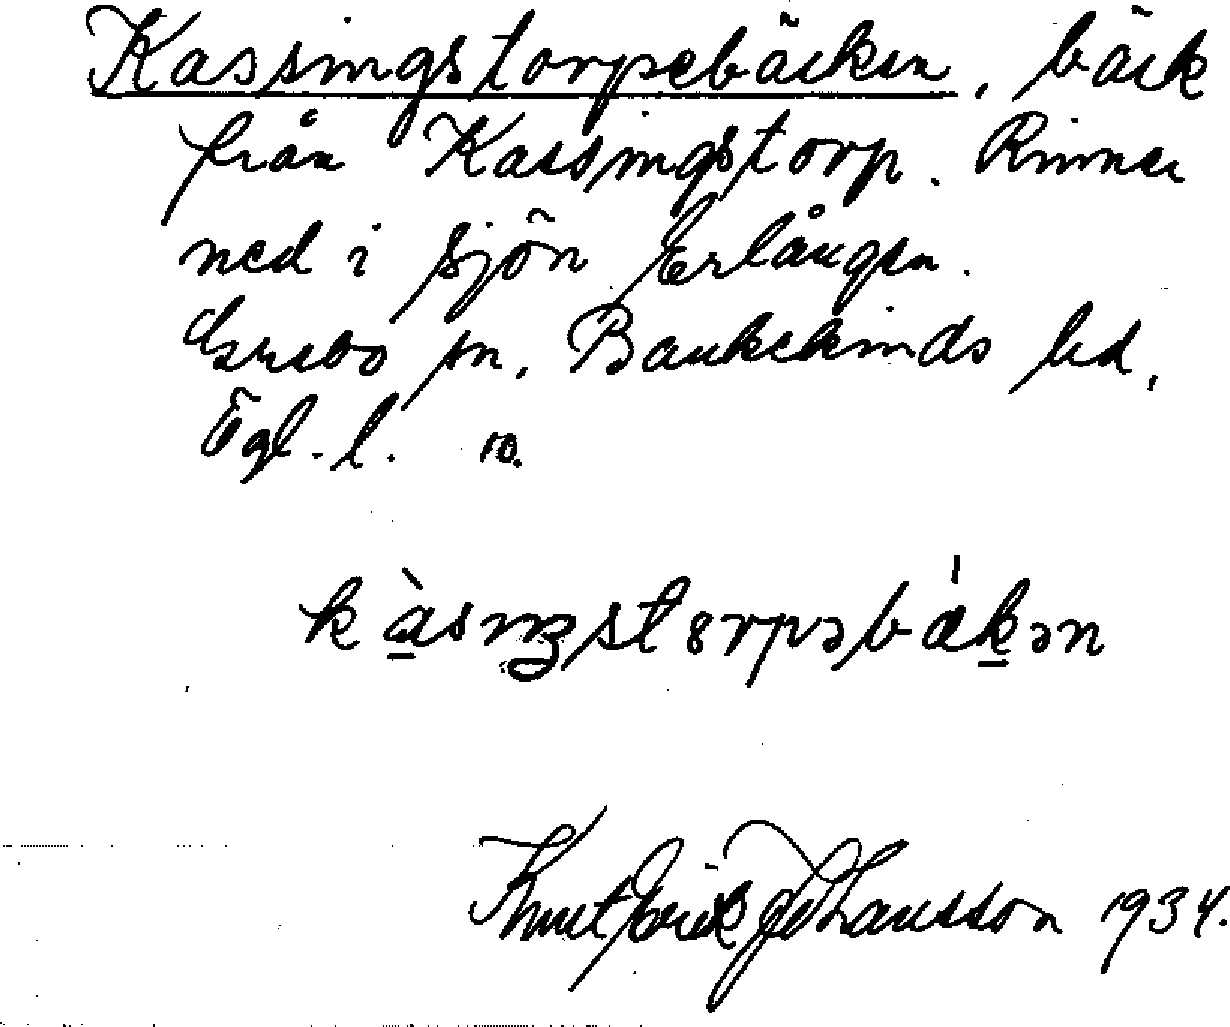 Kassingstorpebäcken, bäck
från Kassingstorp. Rinner
ned i sjön Erlången.
Grebo sn, Bankekinds hd,
Ögl. l. 10.
Knut Erik Johansson 1934.